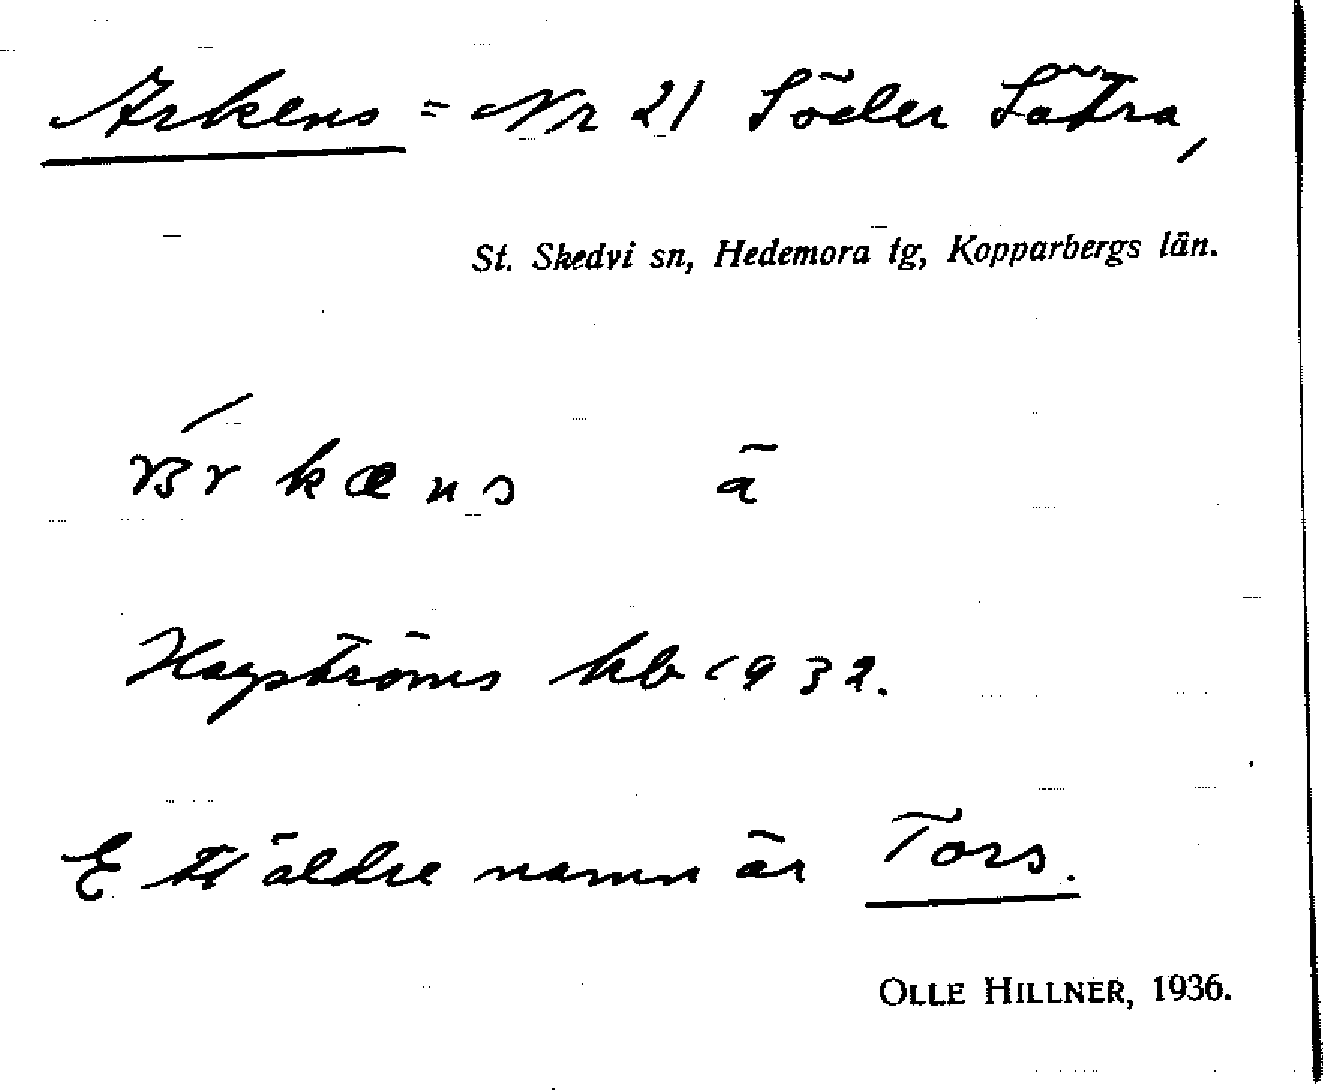 Arkens = Nr 21 Söder Sätra,
St. Skedvi sn, Hedemora tg, Kopparbergs län.
kæns ā
Hagströms kb 1932.
Ett äldre namn är Tors.
OLLE HILLNER, 1936.